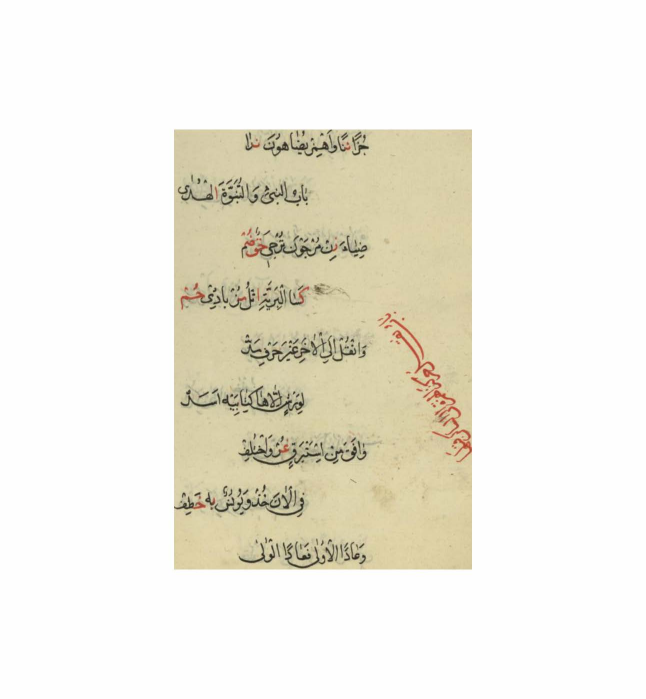 جُزْأً ننا وَاهْمِزْ يُضَاهِوُنَ ندا
بَابَ النَّبِيءِ وَالنُّبُوَّةَ الْهُدَى
ضِيَاءَ زِنْ مُرْجَوْنَ تُرْجِي حَقُّ ضُمْ
كَسَا الْبَرِيَّةِ اتْلُ مِزْ بَادِيَ حُمْ
وَانْقُلْ اِلَى الْاٰخِرِ غَيْرَ حَرْفِ مَدْ
لِوَرْشٍ اِلَّا هَا كِتَابِيَهْ اَسَدْ
وَافَقَ مِنْ اِسْتَبْرَقٍ غِرْ وَاخْتُلِفْ
فِي الْاٰنَ خُذْ وَيُونُسٌ بِهِ خَطِفْ
وَعَادًا الْاُولٰى فَعَادًا الُّولٰى